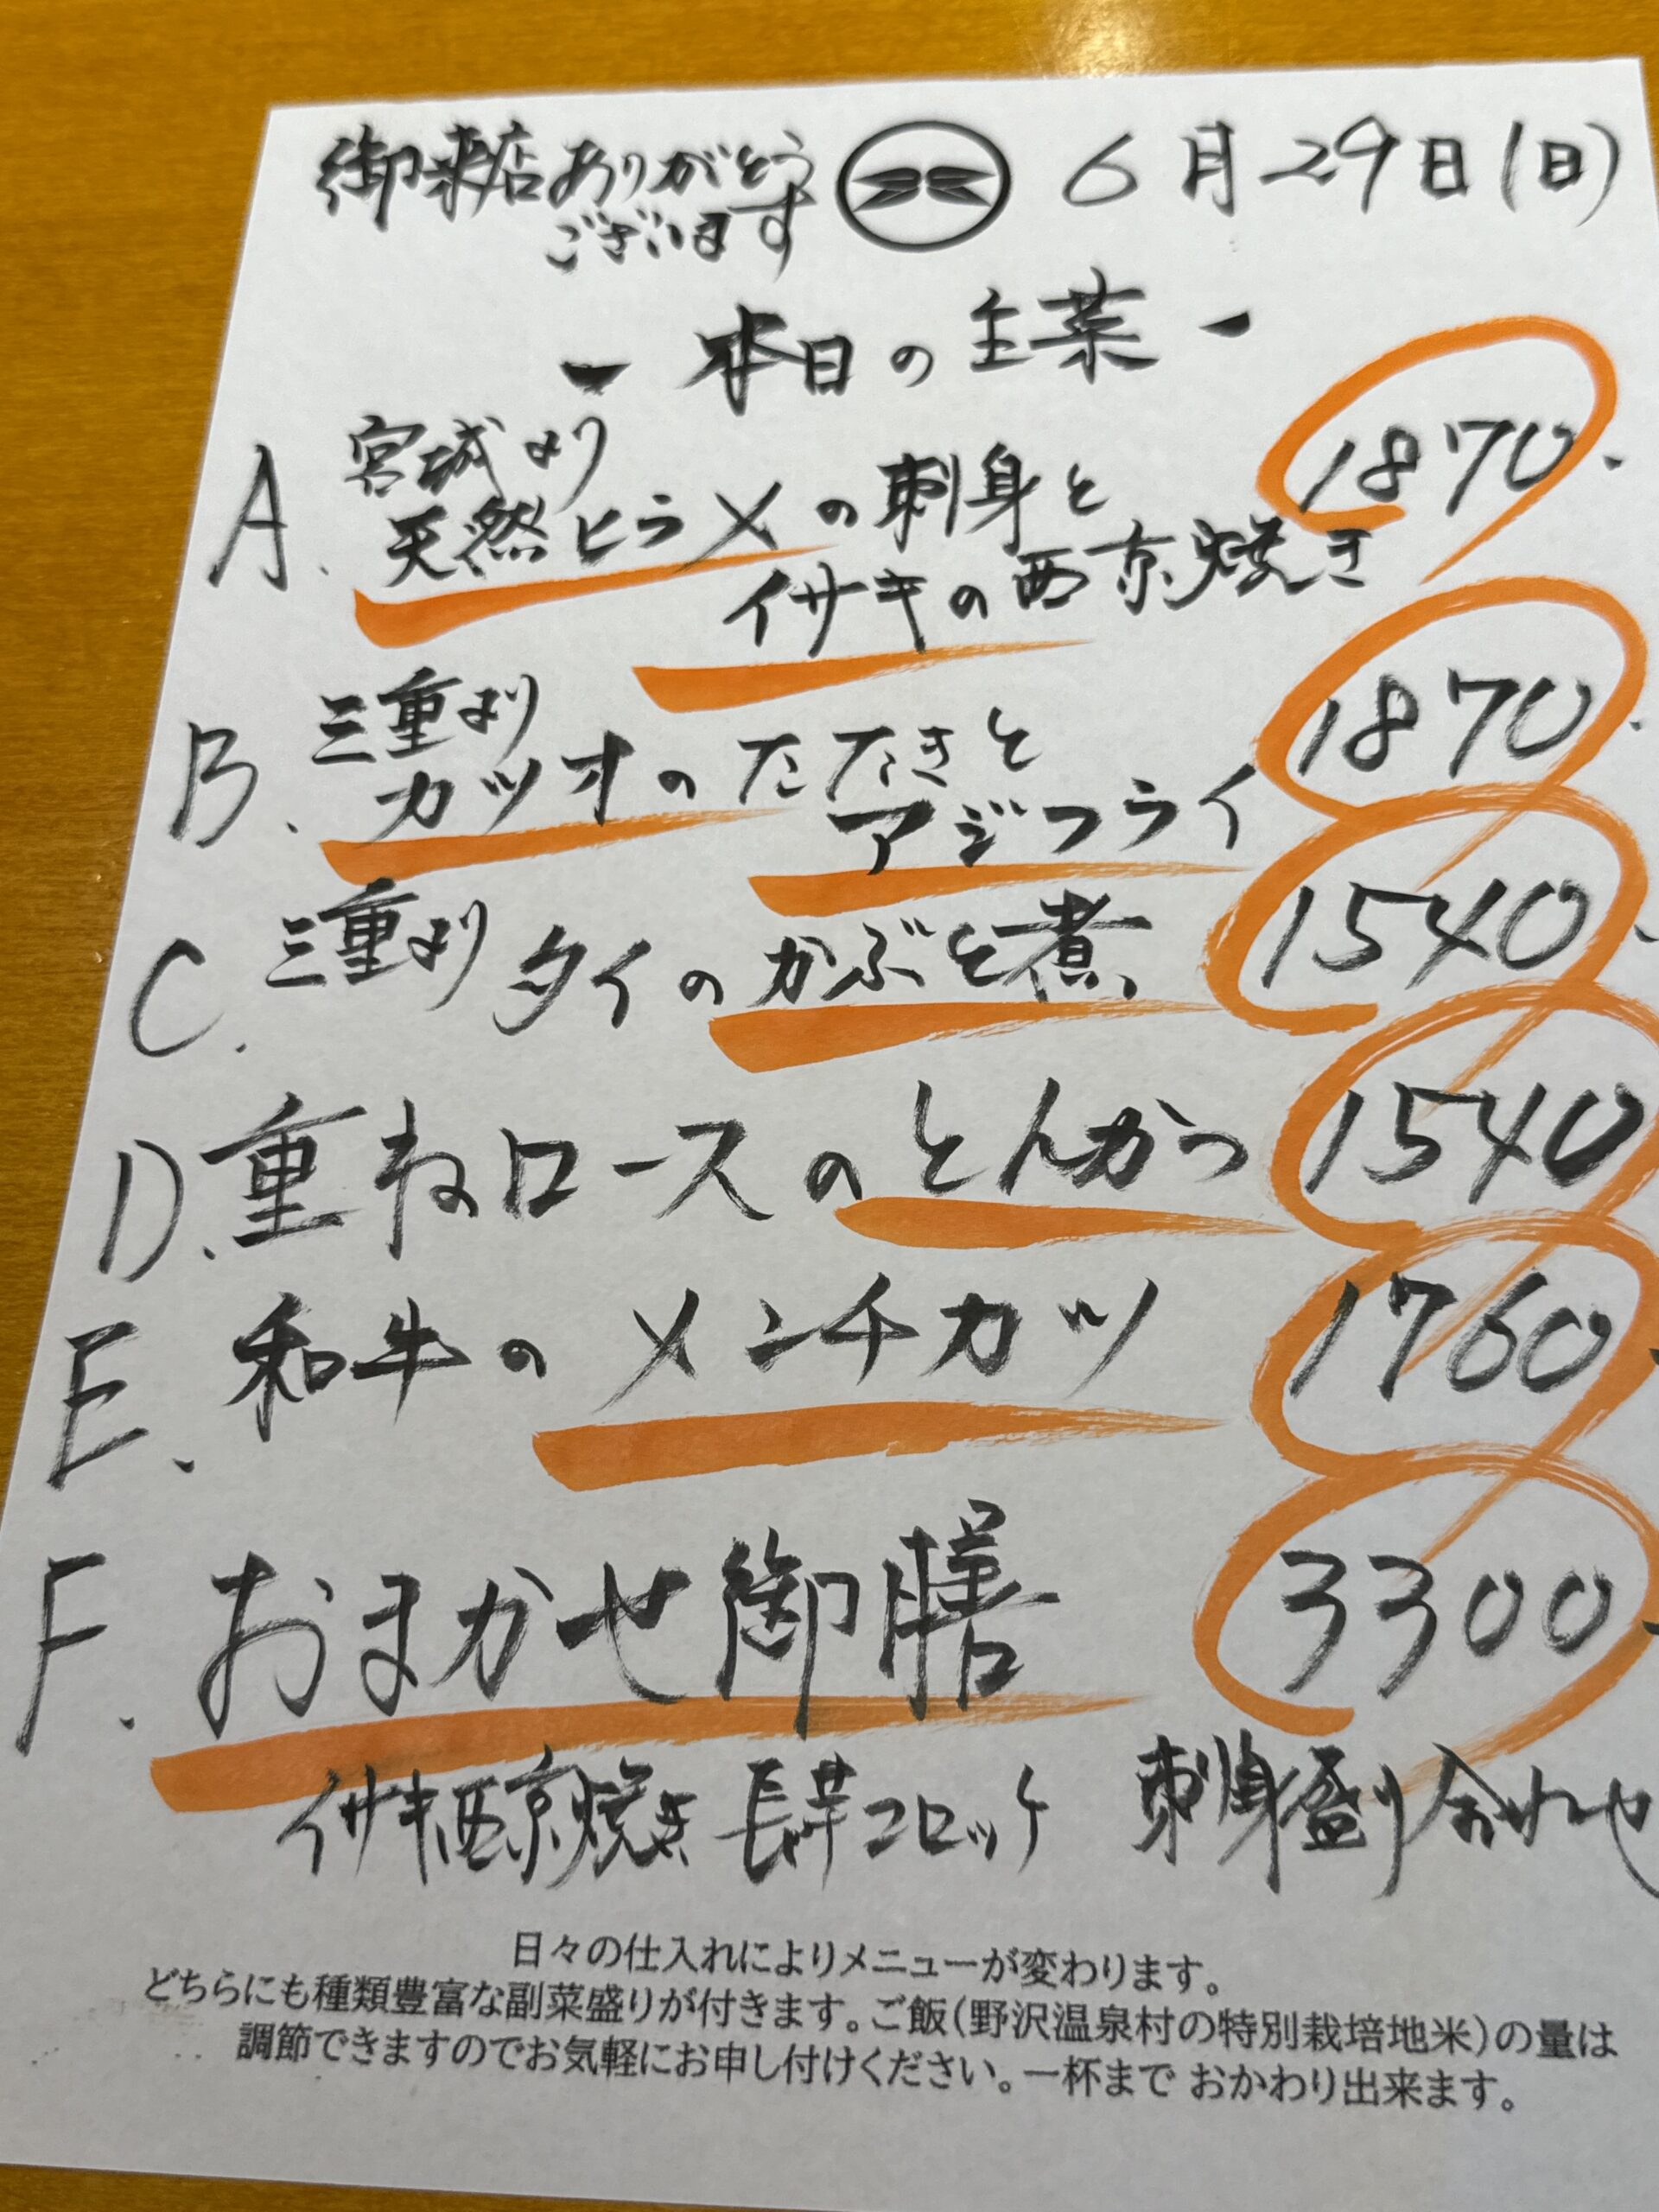 御来店ありがとう
ございます
6月29日(日)
- 本日の主菜 -
A. 宮城より 1870.
天然ヒラメの刺身と
イサキの西京焼き
B. 三重より 1870.
カツオのたたきと
アジフライ
C. 三重より タイのかぶと煮 1540.
D. 重ねロースのとんかつ 1540
E. 和牛のメンチカツ 1760.
F. おまかせ御膳 3300.
イサキ西京焼き 長芋コロッケ 刺身盛り合わせ
日々の仕入れによりメニューが変わります。
どちらにも種類豊富な副菜盛りが付きます。ご飯(野沢温泉村の特別栽培地米)の量は
調節できますのでお気軽にお申し付けください。一杯まで おかわり出来ます。